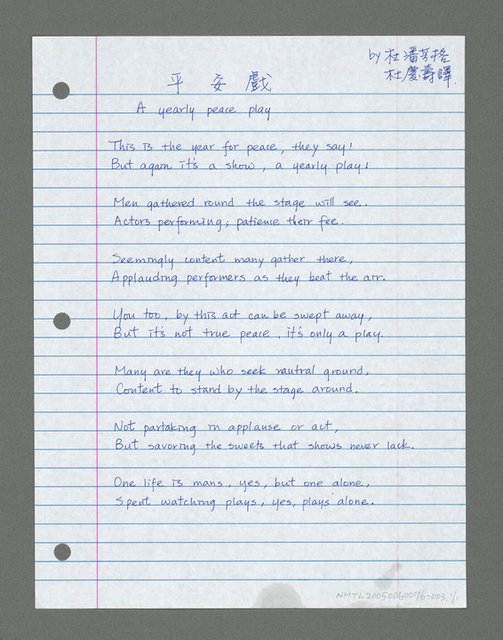 by 杜潘芳格
杜慶壽譯
平安戲
A yearly peace play
This is the year for peace, they say!
But again it's a show, a yearly play!
Men gathered round the stage will see.
Actors performing; patience their fee.
Seemingly content many gather there,
Applauding performers as they beat the air.
You too, by this act can be swept away,
But it's not true peace, it's only a play.
Many are they who seek nautral ground,
Content to stand by the stage around.
Not partaking in applause or act,
But savoring the sweets that shows never lack.
One life is mans, yes, but one alone,
Spent watching plays, yes, plays alone.
NMTL20050060076-003.1/1